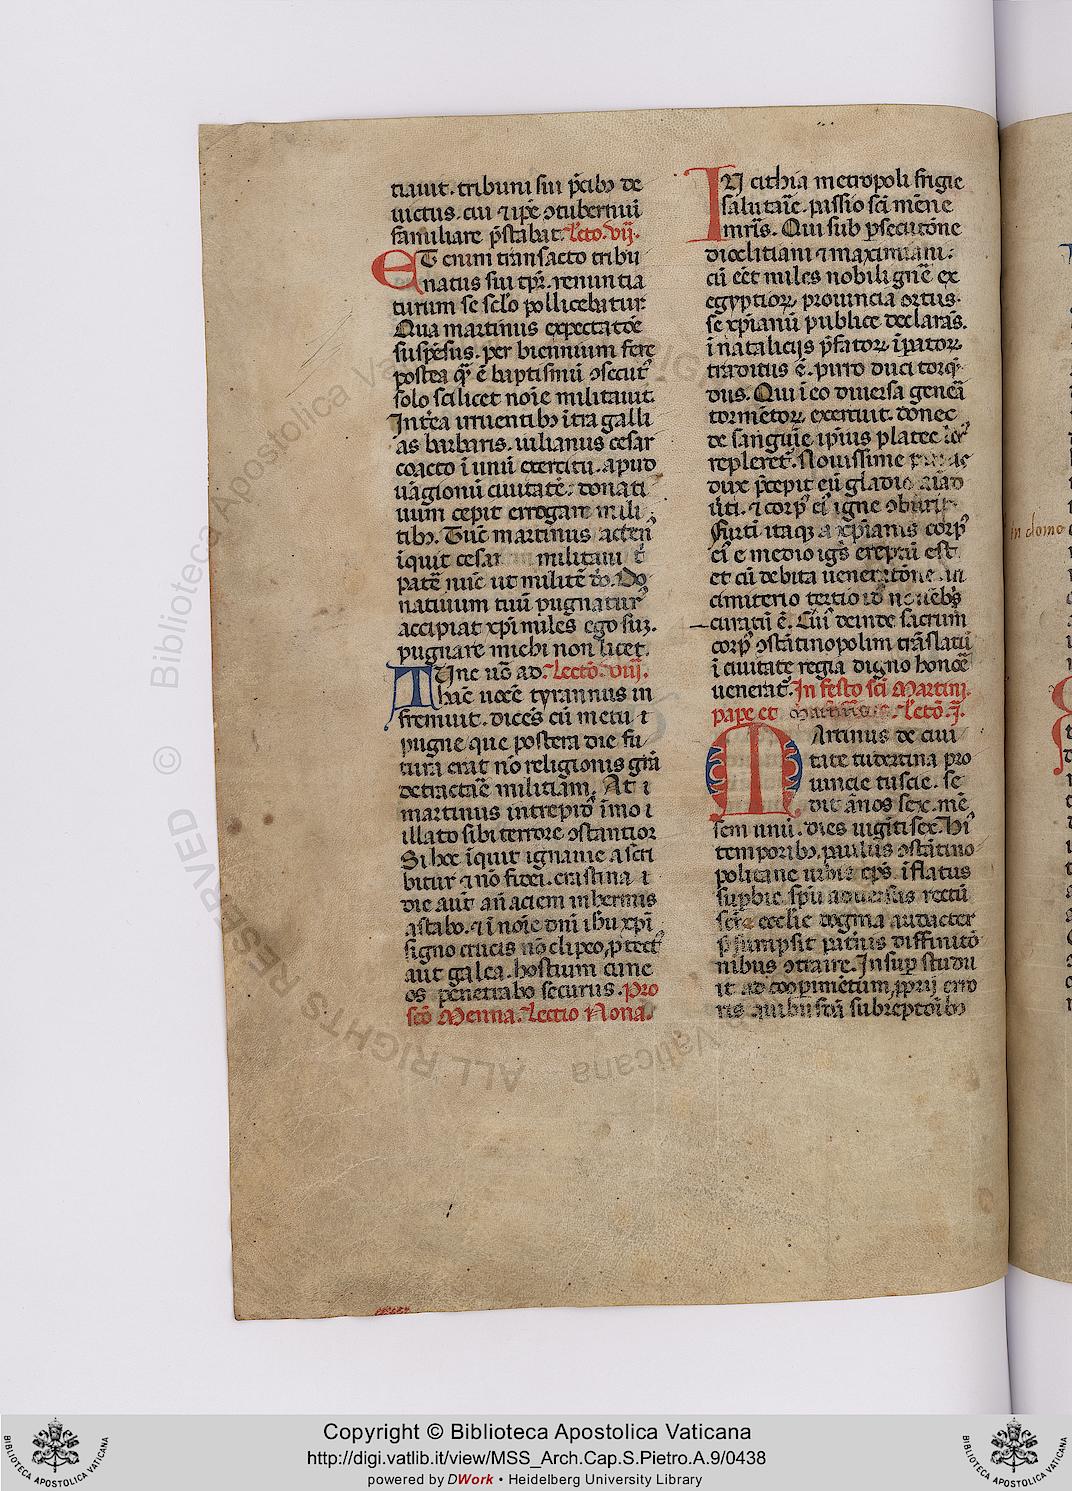 tiauit. tribuni sui p̃cibꝫ de
uictus. cui ⁊ ip̃e ↄtuberniū
familiare p̃stabat. Lcto. vij.
ET enim trãnsacto tribu
natus sui tp̃r. renuntia
turum se sclo pollicebatur
Qua martinus expectatōe
suspẽsus. per biennium fere
postea q̃ ẽ baptismū ↄsecut᷒
solo scilicet noĩe militauit.
Interea irruentibꝫ ĩtra galli
as barbaris. iulianus cesar
coacto ĩ unū exercitu. apud
uãgionū ciuitatẽ. donati
uum cepit errogare mili
tibꝫ. Tūc martinus
ĩquit cesar militaui t̃
patẽ nūc ut militẽ dõ. Do
natiuum tuū pugnatur᷒
accipiat xp̃i miles ego suꝫ.
pugnare michi non licet.
TUnc uõ ad. Lectõ. viij.
hãc uocẽ tyrannus in
fremuit. dicẽs eū metu ⁊
pugne que postera die fu
tura erat nõ religionis grã
detractãe militiam. At ĩ
martinus intrepid᷒ ĩmo ĩ
illato sibi terrore ↄstantior
Si hoc ĩquit ignauie asci
bitur ⁊ nõ fidei. crastina ĩ
die aūt añ aciem inhermis
astabo. ⁊ ĩ noĩe dnĩ ihu xp̃i
signo crucis nõ clipeo, ꝓtect᷒
aut galea. hostium cune
os penetrabo securus. Pro
sctõ Menna. Lectio Nona.
IN cithia metropoli frigie
salutarĩe. passio scĩ mẽne
mr̃is. Qui sub ꝑsecutōne
dioclitiani ⁊ maximiani.
cū eẽt miles nobili gnẽe ex
egyptioꝝ prouincia ortus.
se xp̃ianū publice declarãs.
ĩ nataliciis p̃fatoꝝ ĩpatoꝝ
traditus ẽ. pirro duci torq̃
dus. Qui ĩ eo diuersa genera
tormẽtoꝝ exercuit. donec
de sanguĩe ip̃ius platee
repleret᷒. Nouissime
dux p̃cepit eū gladio aĩad
ũti. ⁊ corp᷒ ei᷒ igne ↄburi.
Furtĩ itaqꝫ a xp̃ianis corp᷒
ei᷒ e medio igis ereptū est
et cū debita ueneratōne. in
cimiterio tertio id᷒ nouẽbs
curatū ẽ. Cui᷒ deinde sacrum
corp᷒ ↄstãtinopolim trãslatū
ĩ ciuitate regia digno honoẽ
uenerat᷒. In festo scĩ Martini
pape et Lctõ. j.
MArtinus de ciui
tate tudertina pro
uincie tuscie. se
dit ãnos sex. mẽ
sem unū. dies uigĩti sex. Hi᷒
temporibꝫ. paulus ↄstãtino
politane urbis ep̃s. ĩflatus
supbie sp̃u aduersus rectū
scẽ eccl̃ie dogma audacter
p̃sumpsit patnis diffinitõ
nibus ↄtraire. Insuꝑ studu
it ad cooꝑimẽtum, ꝓprij erro
ris quibusdã subreptõibꝫ
in domo
Copyright © Biblioteca Apostolica Vaticana
http://digi.vatlib.it/view/MSS_Arch.Cap.S.Pietro.A.9/0438
powered by DWork • Heidelberg University Library
BIBLIOTECA APOSTOLICA VATICANA
BIBLIOTECA APOSTOLICA VATICANA
© Biblioteca Apostolica Vaticana
ALL RIGHTS RESERVED